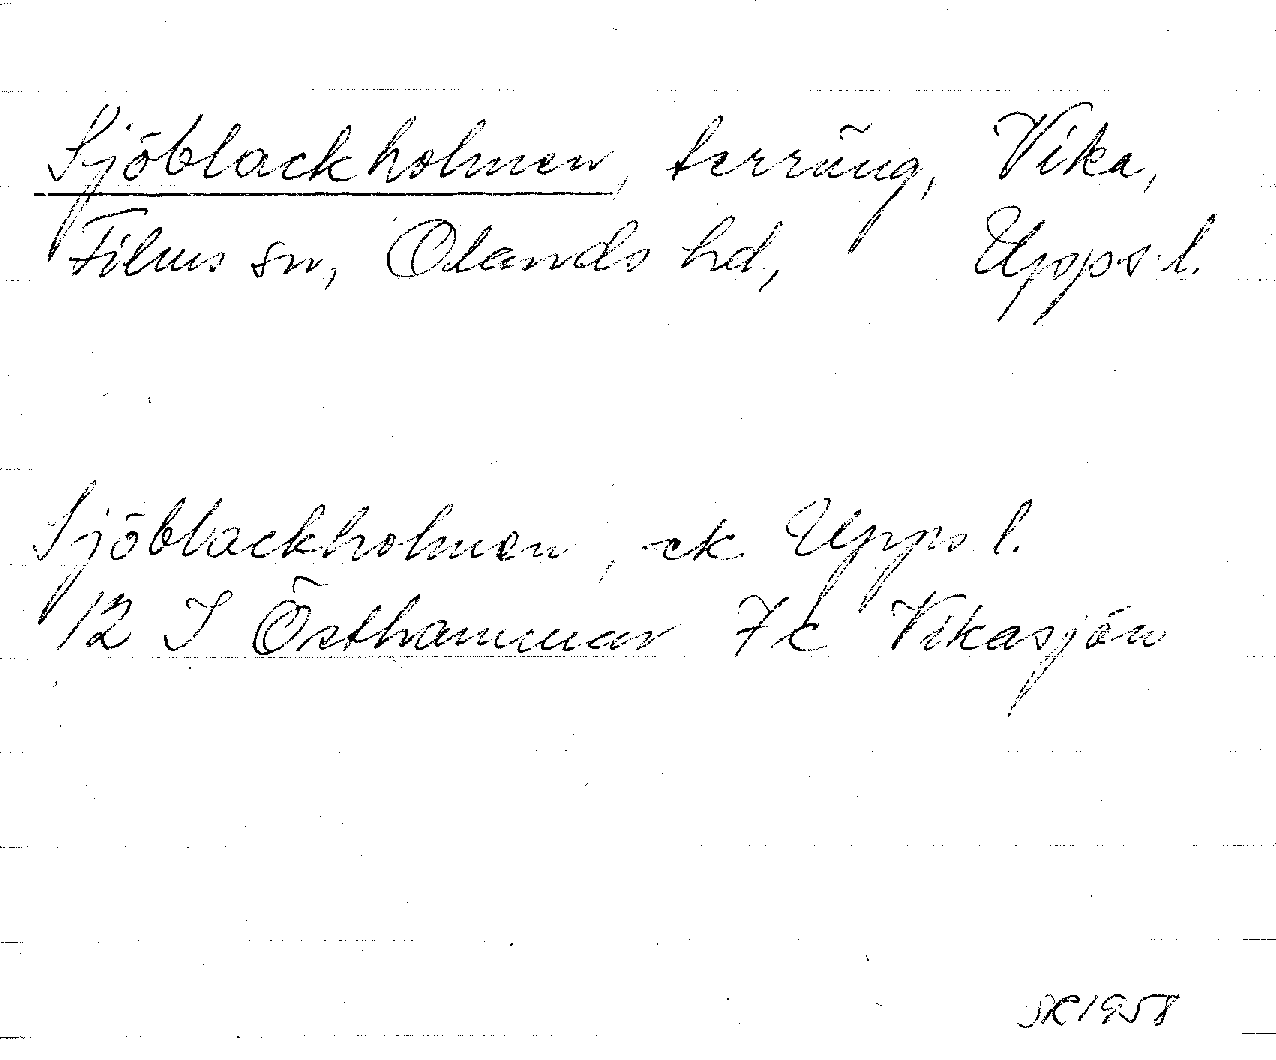 Sjöblackholmen, terräng, Vika,
Films sn, Olands hd, Uppsl.
Sjöblackholmen, ek Uppsl.
12 I Östhammar 7c Vikasjön
SK 1958